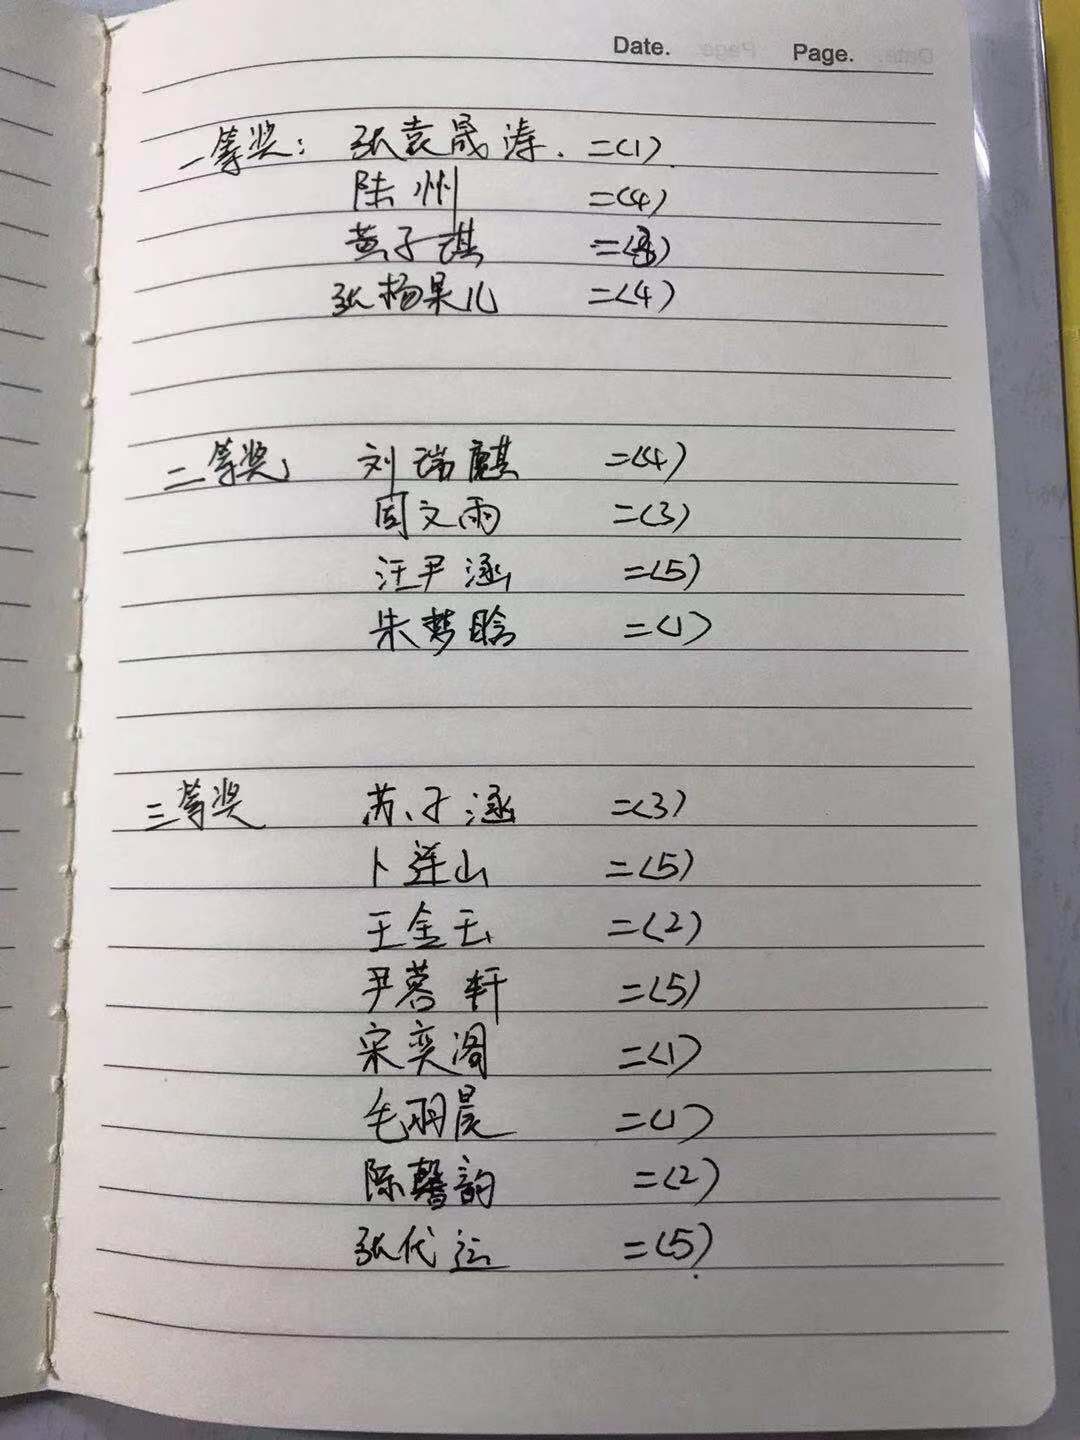 Date. Page.
一等奖: 张袁晟涛. 二(1)
陆州 二(4)
黄子琪 二(3)
张杨果儿 二(4)
二等奖: 刘瑞麒 二(4)
周文雨 二(3)
汪尹涵 二(5)
朱梦晗 二(1)
三等奖 苏子涵 二(3)
卜莲山 二(5)
王金玉 二(2)
尹蓉轩 二(5)
宋奕阁 二(1)
毛羽晨 二(1)
陈馨韵 二(2)
张代运 二(5)